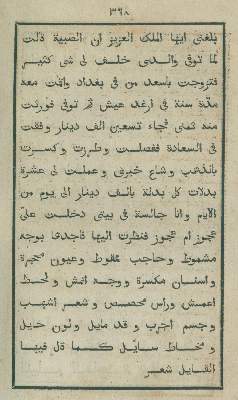 ٣٦٨
بلغني ايها الملك العزيز ان الصبية قالت
لما توفي والدي خلف لي شي كثير
فتزوجت باسعد من في بغداد واقمت معه
مدّة سنة في ارغد عيش ثم توفي فورثت
منه ثمني فجاء تسعين الف دينار وفقت
في السعادة ففصلت وطرزت وكسرت
بالذهب وشاع خبري وعملت لي عشرة
بدلات كل بدلة بالف دينار الي يوم من
الايام وانا جالسة في بيتي دخلت عليّ
عجوز ام عجوز فنظرت اليها فاجدها بوجه
مشموط وحاجب ممغوط وعيون مجرة
واسنان مكسرة ووجه انمش ولحظ
اعمش وراس مجصص وشعر اشهب
وجسم اجرب وقد مايل ولون حايل
ومخاط سايل كما قال فيها
القايل شعر